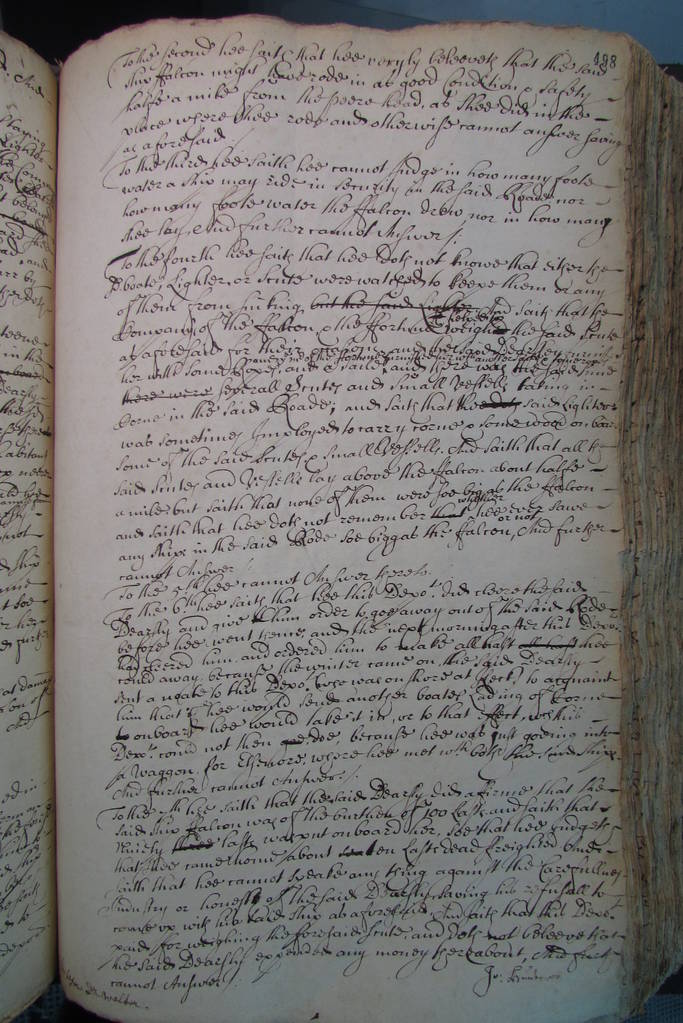 198
To the second hee saith that hee veryly beleeveth that the said
ship ffalcon might have rode in as good Condition & safety
halfe a mile from the peere head, as shee did in the
place where shee rode and otherwise cannot answer saving
as aforesaid
To the third hee saith hee cannot Judge in how many foote
water a ship may ride in security in the said Roade nor
how many foote water the ffalcon drew, nor in how many
shee lay, And further cannot Answer /:
To the fourth hee saith that hee doth not knowe that either the
Boate, Lighter, or Scute were watched to keepe them or any
of them from sinking, but the said And saith that the
Company of the ffalcon & the ffortune weighed the said Scute
as aforesaid for the
her with some Ropes, and saith and there was the said
there were severall Scutes and small vessells taking in
Corne in the said Roade, and saith that the said Lighter
was sometimes Imployed to carry Corne & some wood on board
some of the said Scutes & small vessells, And saith that all the
said Scutes and Vessells lay above the ffalcon about halfe
a mile but saith that none of them were soe big as the ffalcon
and saith that hee doth not remember that whether hee ever sawe
any ships in the said Rode soe bigg as the ffalcon, or not And further
cannot Answer
To the 5th hee cannot Answer thereto.
To the 6th hee saith that hee this Depot. did cleere the said
Dearsly and give him order to goe away out of the said Rode
before hee went thence, and the next morning after this Depot.
had cleered him, and ordered him to make all hast all hast hee
could away, because the winter came on, the said Dearsly
sent a note to this Depot. hee was on shore at to acquaint
him that if hee would send another boates Lading of Corne
on board hee would take it in, or to that effect, which this
Depot. could not then doe, because hee was just goeing into
a Waggon, for Elsenore, where hee met with both the said ships
And further cannot Answer /:
To the 7th hee saith that the said Dearsly did affirme that the
said ship ffalcon was of the burthen of 100 Lasts and saith that
Ninety lasts was put on board her, soe that hee Judgeth
that shee came home about ten Lasts dead freighted And
saith that hee cannot speake any thing against the Carefullnes
Industry or honesty of the said Dearsly, saving his refusall to
come up with his said ship as aforesaid, And saith that this Depot.
paid for weighing the foresaid Scute, and doth not beleeve that
the said Dearsly expended any money thereabout, And further
cannot Answer /